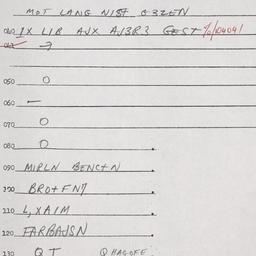 MOT LANG NIST G3ZEN
040 1X LIB AJX AJ3R3 GEST
050 O
060 —
070 O
080 O
090 MIRLN BENCTN
100 BRO+FN7
110 L,XAIM
120 FARBAJSN
130 QT @HAGOFE